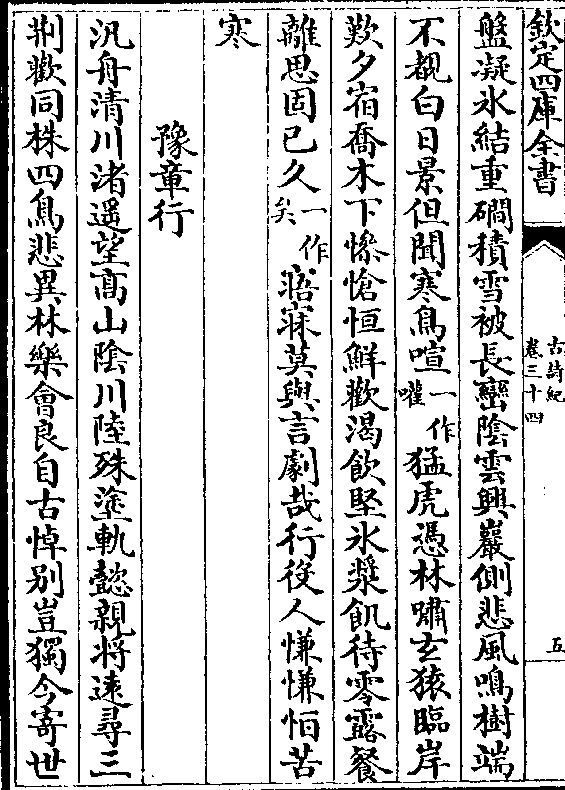 欽定四庫全書
古詩紀
卷三十四
五
盤凝氷結重磵積雪被長巒陰雲興巖側悲風鳴樹端
不覩白日景但聞寒鳥喧一作嚾猛虎憑林嘯玄猿臨岸
歎夕宿喬木下慘愴恒鮮歡渴飲堅氷漿飢待零露餐
離思固已久一作矣寤寐莫與言劇哉行役人慊慊恒苦
寒
豫章行
汎舟清川渚遥望髙山陰川陸殊塗軌懿親將逺尋三
荆歡同株四鳥悲異林樂會良自古悼别豈獨今寄世